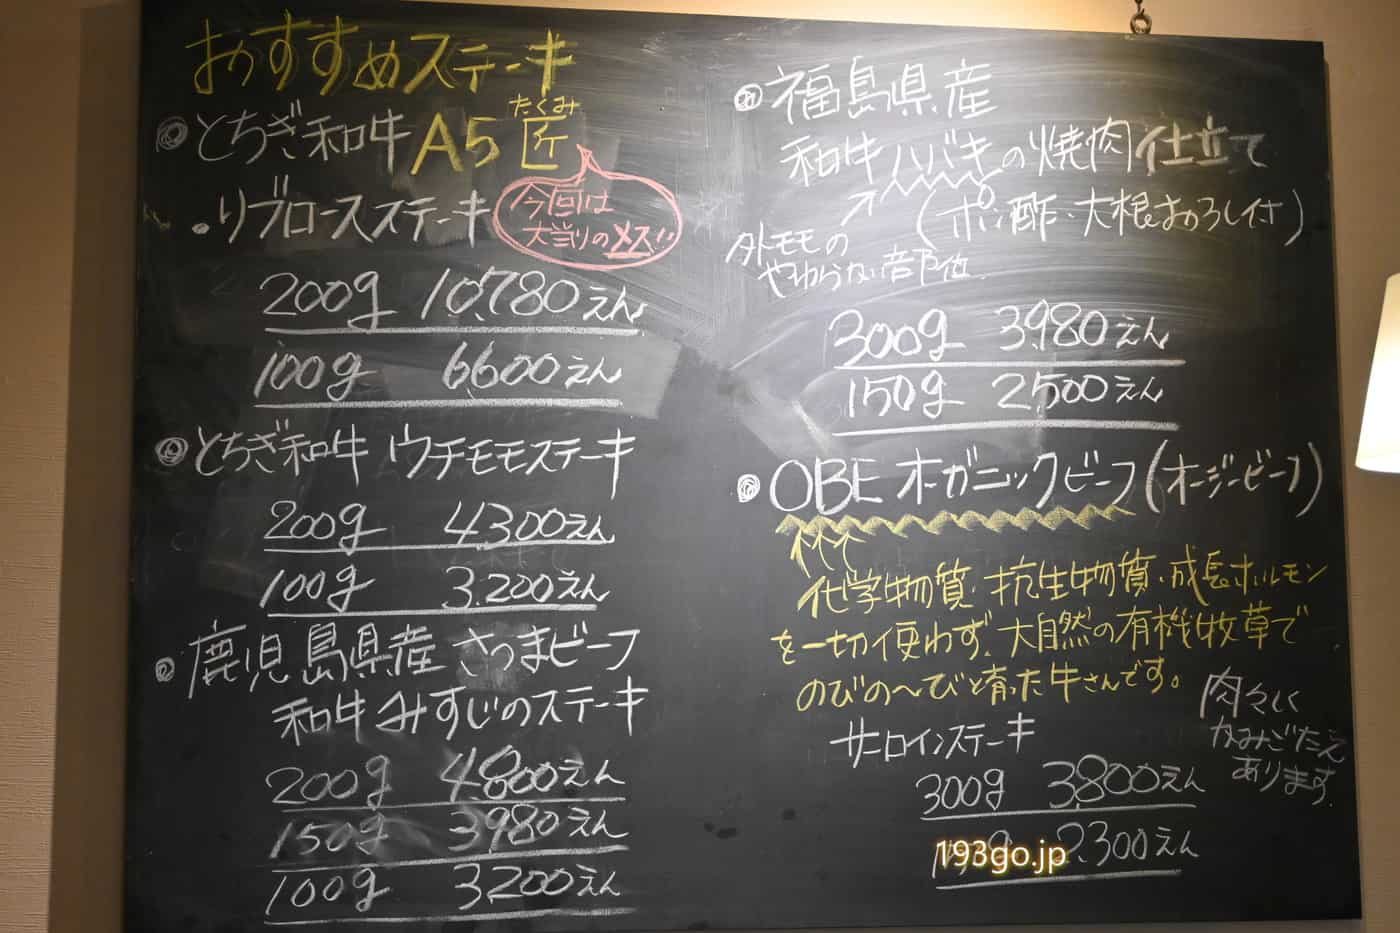 おすすめステーキ
◎とちぎ和牛 A5 匠
たくみ
・リブロースステーキ
今回は
大当りのメス!!
200g 10,780えん
100g 6600えん
◎とちぎ和牛 ウチモモステーキ
200g 4300えん
100g 3,200えん
◎鹿児島県産 さつまビーフ
和牛みすじのステーキ
200g 4,800えん
150g 3980えん
100g 3200えん
◎福島県産
和牛ハバキの焼肉仕立て
(ポン酢・大根おろし付)
外モモの
やわらかい部位
300g 3,980えん
150g 2500えん
◎OBE オーガニックビーフ(オージービーフ)
化学物質・抗生物質・成長ホルモン
を一切使わず、大自然の有機牧草で
のびの〜びと育った牛さんです。
肉々しく
かみごたえ
あります。
サーロインステーキ
300g 3,800えん
300えん
193go.jp